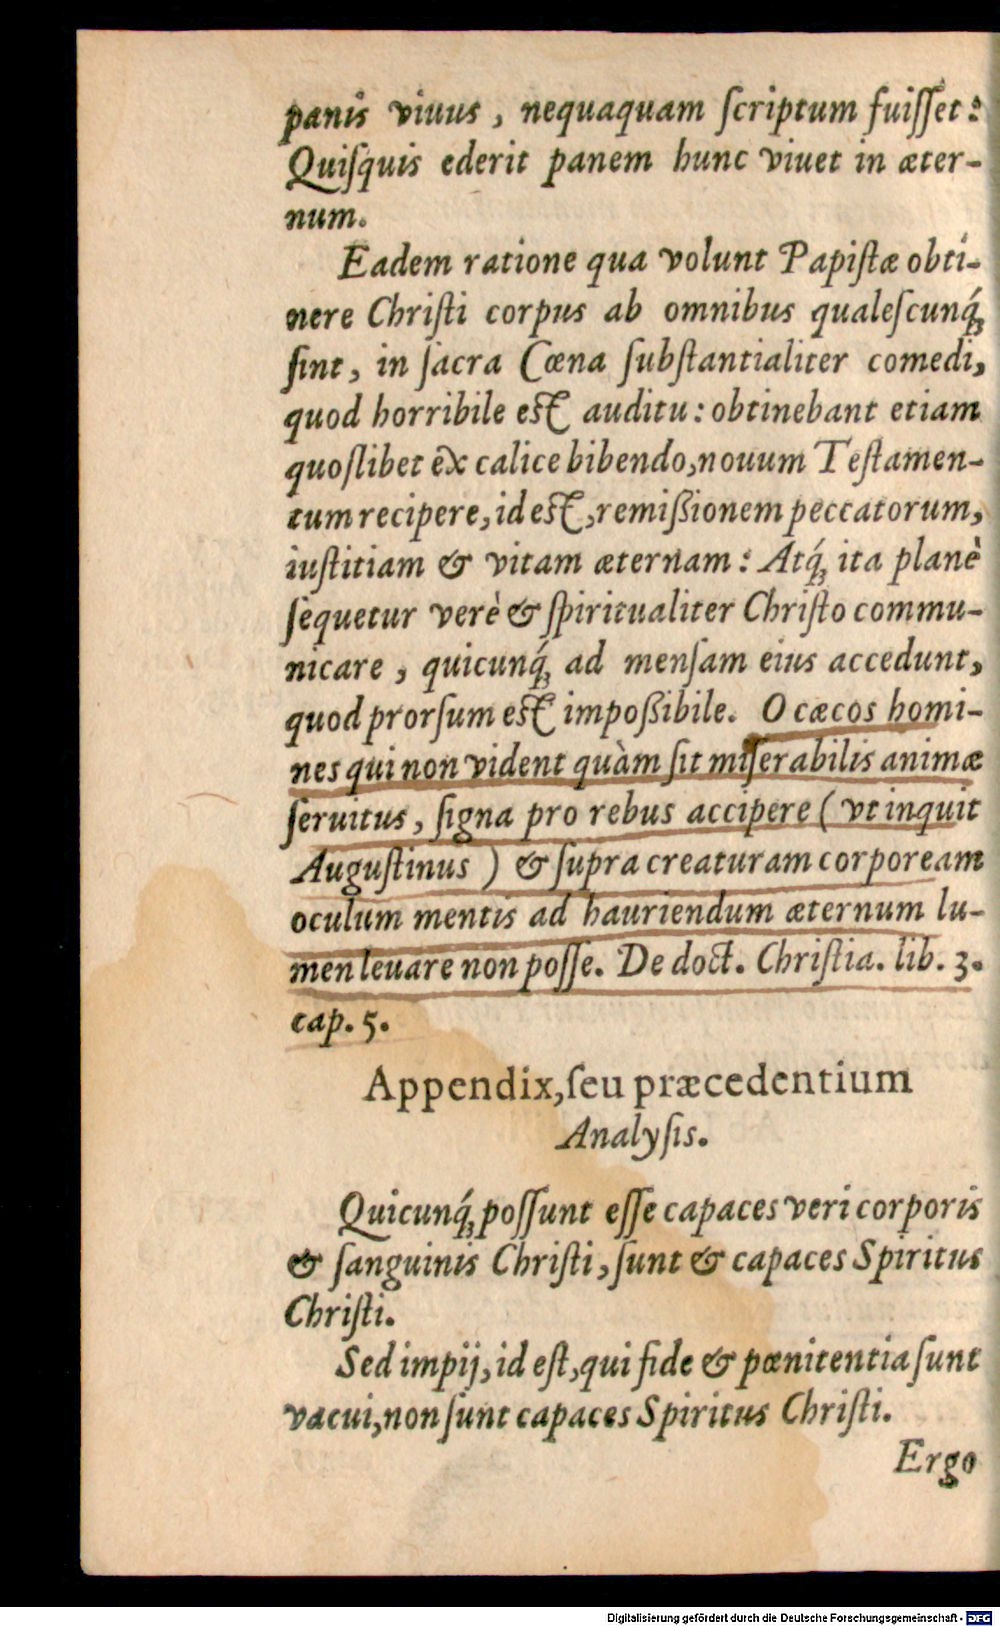 panis viuus, nequaquam ſcriptum fuiſſet:
Quiſquis ederit panem hunc viuet in æter-
num.
Eadem ratione qua volunt Papiſtæ obti-
nere Chriſti corpus ab omnibus qualeſcunq́;
ſint, in ſacra Cœna ſubſtantialiter comedi,
quod horribile eſt auditu: obtinebant etiam
quoſlibet ex calice bibendo, nouum Teſtamen-
tum recipere, id eſt, remißionem peccatorum,
iuſtitiam & vitam æternam: Atq́; ita planè
ſequetur verè & ſpiritualiter Chriſto commu-
nicare, quicunq́; ad menſam eius accedunt,
quod prorſum eſt impoßibile. O cæcos homi-
nes qui non vident quàm ſit miſerabilis animæ
ſeruitus, ſigna pro rebus accipere (vt inquit
Auguſtinus) & ſupra creaturam corpoream
oculum mentis ad hauriendum æternum lu-
men leuare non poſſe. De doct. Chriſtia. lib. 3.
cap. 5.
Appendix, ſeu præcedentium
Analyſis.
Quicunq́; poſſunt eſſe capaces veri corporis
& ſanguinis Chriſti, ſunt & capaces Spiritus
Chriſti.
Sed impij, id eſt, qui fide & pœnitentia ſunt
vacui, non ſunt capaces Spiritus Chriſti.
Ergo
Digitalisierung gefördert durch die Deutsche Forschungsgemeinschaft - DFG